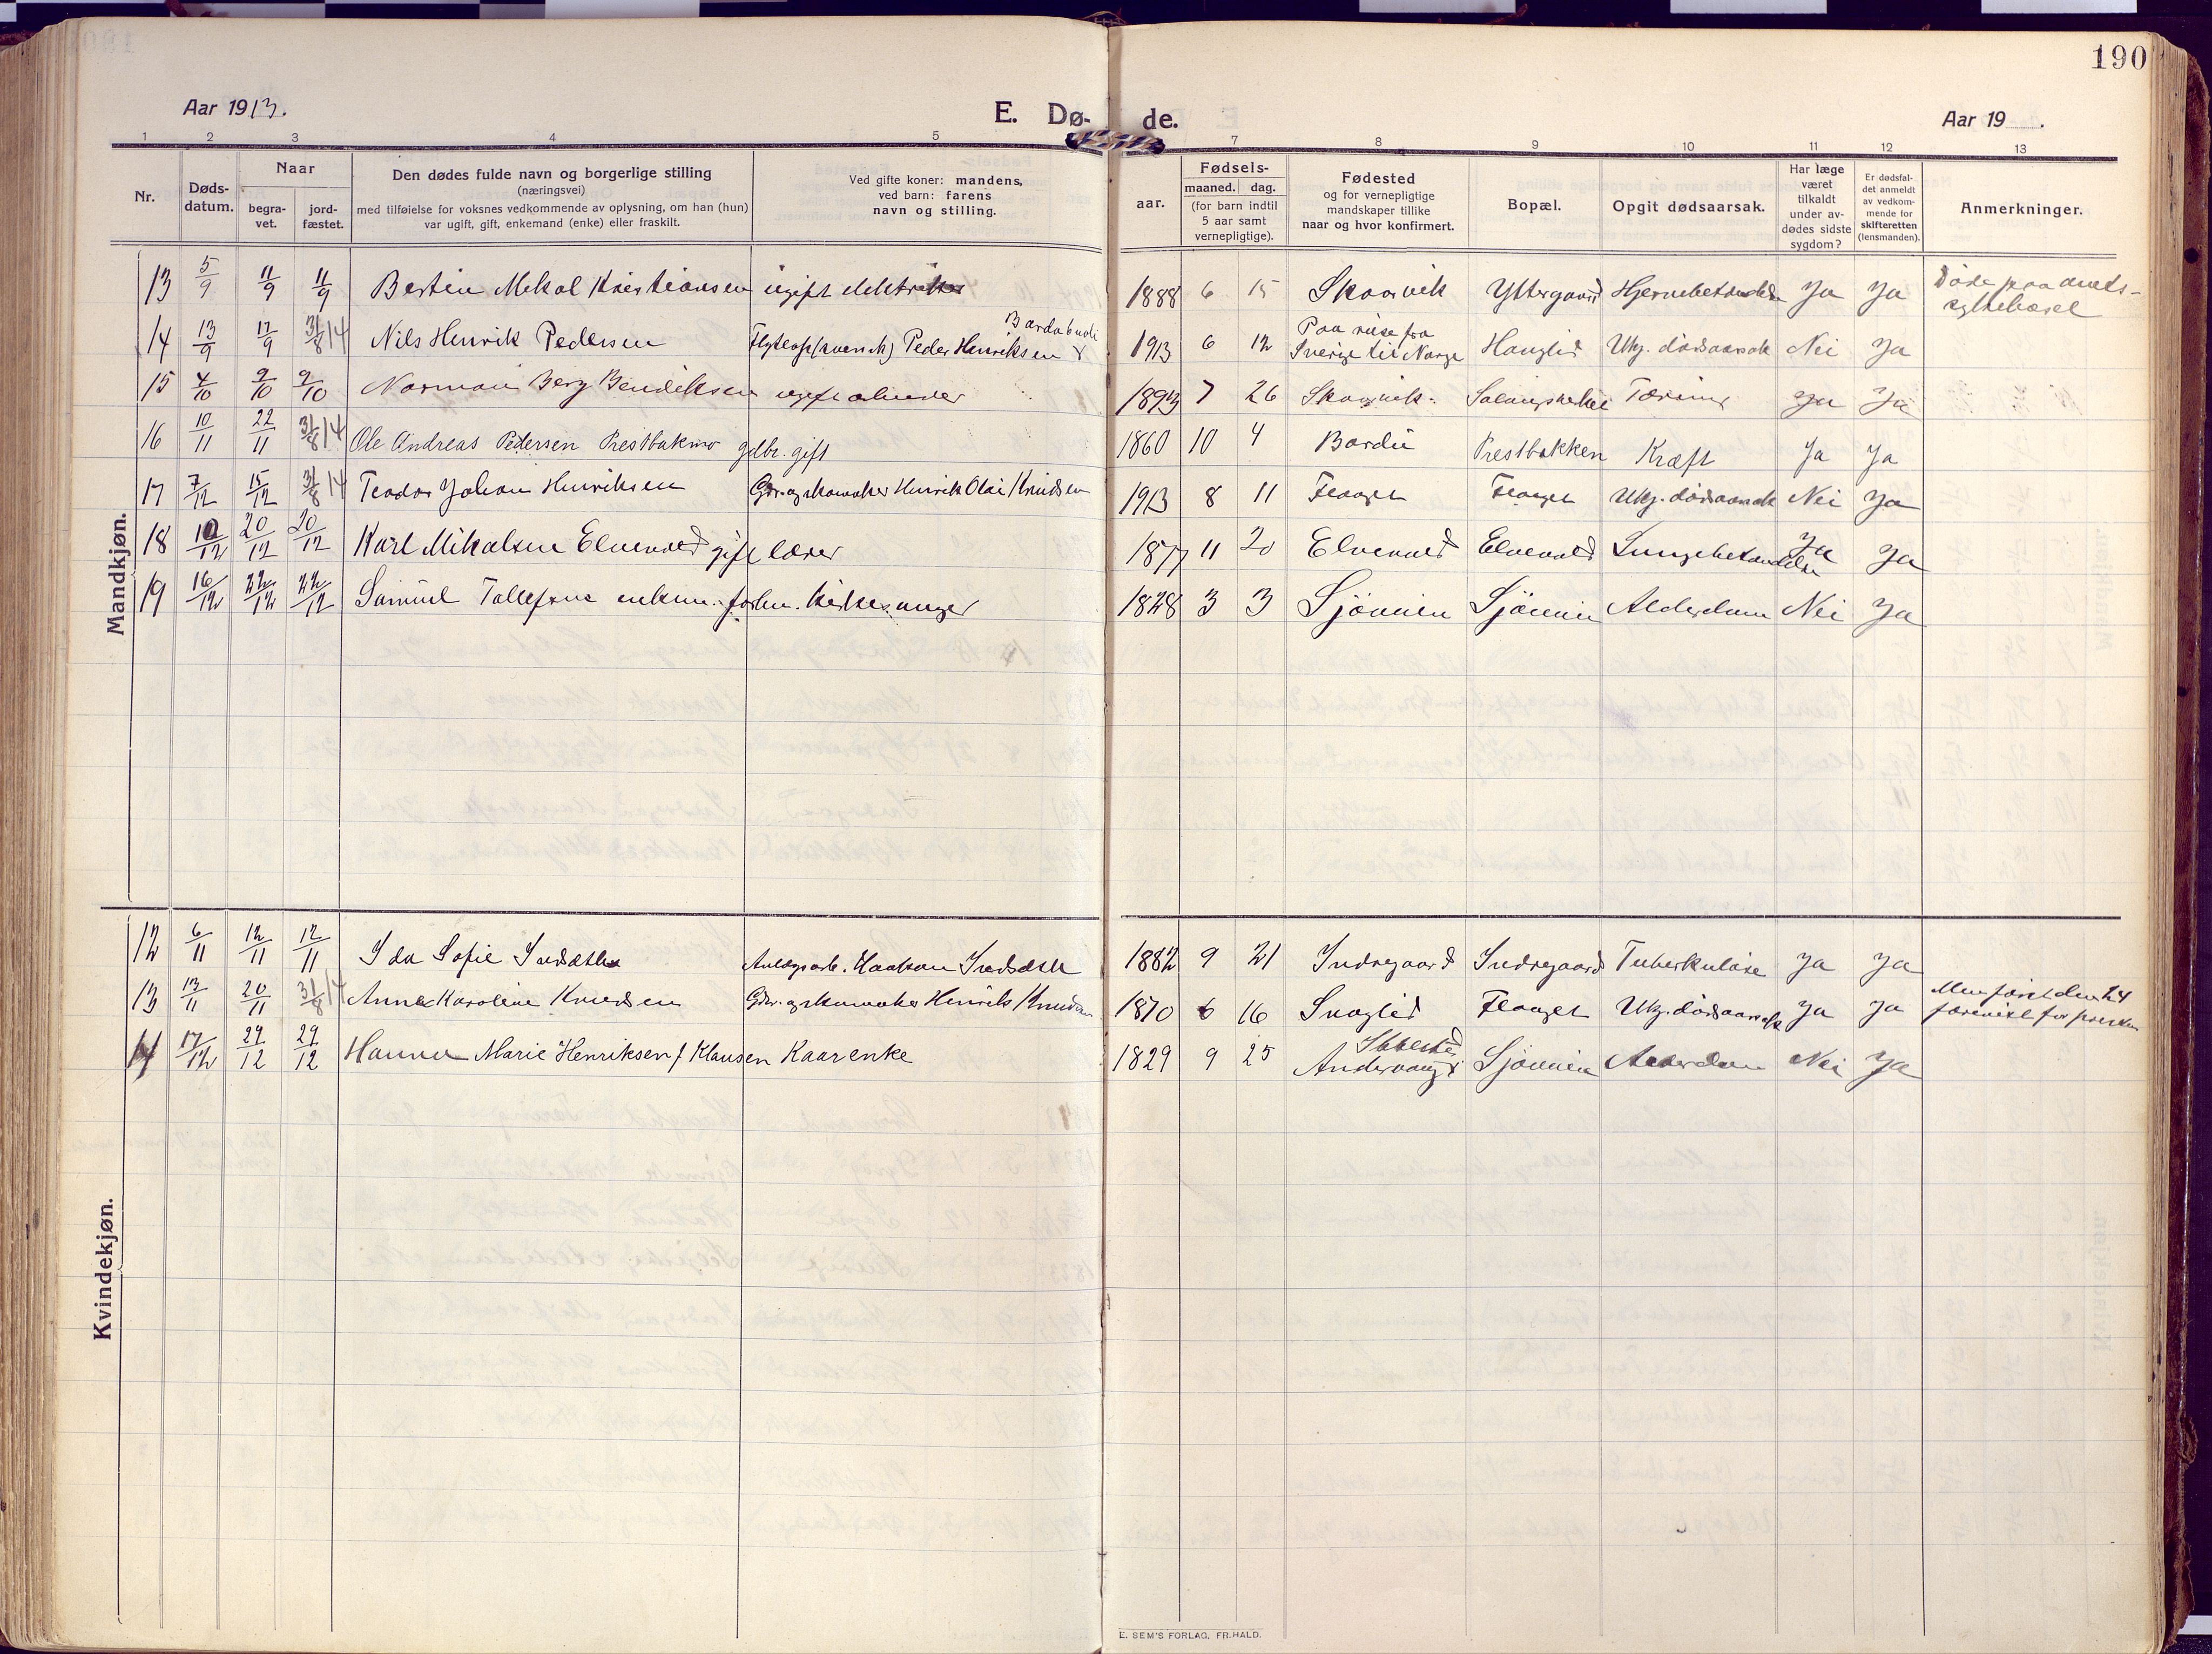 190
Aar 1913.
E. Dø-
de.
Aar 19 .
1 2 3 4 5 7 8 9 10 11 12 13
Nr.
Døds-
datum.
Naar
begra-
vet.
jord-
fæstet.
Den dødes fulde navn og borgerlige stilling
(næringsvei)
med tilføielse for voksnes vedkommende av oplysning, om han (hun)
var ugift, gift, enkemand (enke) eller fraskilt.
Ved gifte koner: mandens,
ved barn: farens
navn og stilling.
aar.
Fødsels-
maaned. dag.
(for barn indtil
5 aar samt
vernepligtige).
Fødested
og for vernepligtige
mandskaper tillike
naar og hvor konfirmert.
Bopæl.
Opgit dødsaarsak.
Har læge
været
tilkaldt
under av-
dødes sidste
sygdom?
Er dødsfal-
det anmeldt
av vedkom-
mende for
skifteretten
(lensmanden).
Anmerkninger.
Mandkjøn.
13 5/9 11/9 11/9 Bertin Mekal Kristiansen ugift 1888 6 15 Skoarvik Yttergaard Ja Ja Døde paa amts-
14 13/9 17/9 31/8 14 Nils Henrik Pedersen Peder Henriksen 1913 6 12 Paa reise fra
Sverige til Norge Hanglid Ukj. dødsaarsak Nei Ja
15 4/10 9/10 9/10 Norman Berg Bendiksen ugift 1893 7 26 Tæring Ja Ja
16 10/11 22/11 31/8 14 Ole Andreas Pedersen Prestbakmo gdbr. gift 1860 10 4 Bardu Prestbakken Kræft Ja Ja
17 7/12 15/12 31/8 14 Teodor Johan Henriksen Gbr. og skomaker Henrik Olai Knudsen 1913 8 11 Flaaget Flaaget Ukj. dødsaarsak Nei Ja
18 10/12 20/12 20/12 Karl Mikalsen Elvevold gift lærer 1877 11 20 Elvevold Elvevold Lungebetændelse Ja Ja
19 16/12 22/12 22/12 Samuel Tollefsen enkem. forhn. kirkesanger 1828 3 3 Sjøvien Sjøvien Alderdom Nei Ja
Kvindekjøn.
12 6/11 12/11 12/11 Ida Sofie Indsæth Anlægsarb. Haakon Indsæth 1882 9 21 Indregaard Indregaard Tuberkulose Ja Ja
13 13/11 20/11 31/8 14 Anna Karoline Knudsen Gbr. og skomaker Henrik Knudsen 1870 6 16 Flaaget Ukj. dødsaarsak Ja Ja
14 17/12 29/12 29/12 Hanna Marie Henriksen f. Klausen Kaarenke 1829 9 25 Ibbestad
Andervaag Sjøvien Alderdom Nei Ja
E. SEM'S FORLAG, FR.HALD.